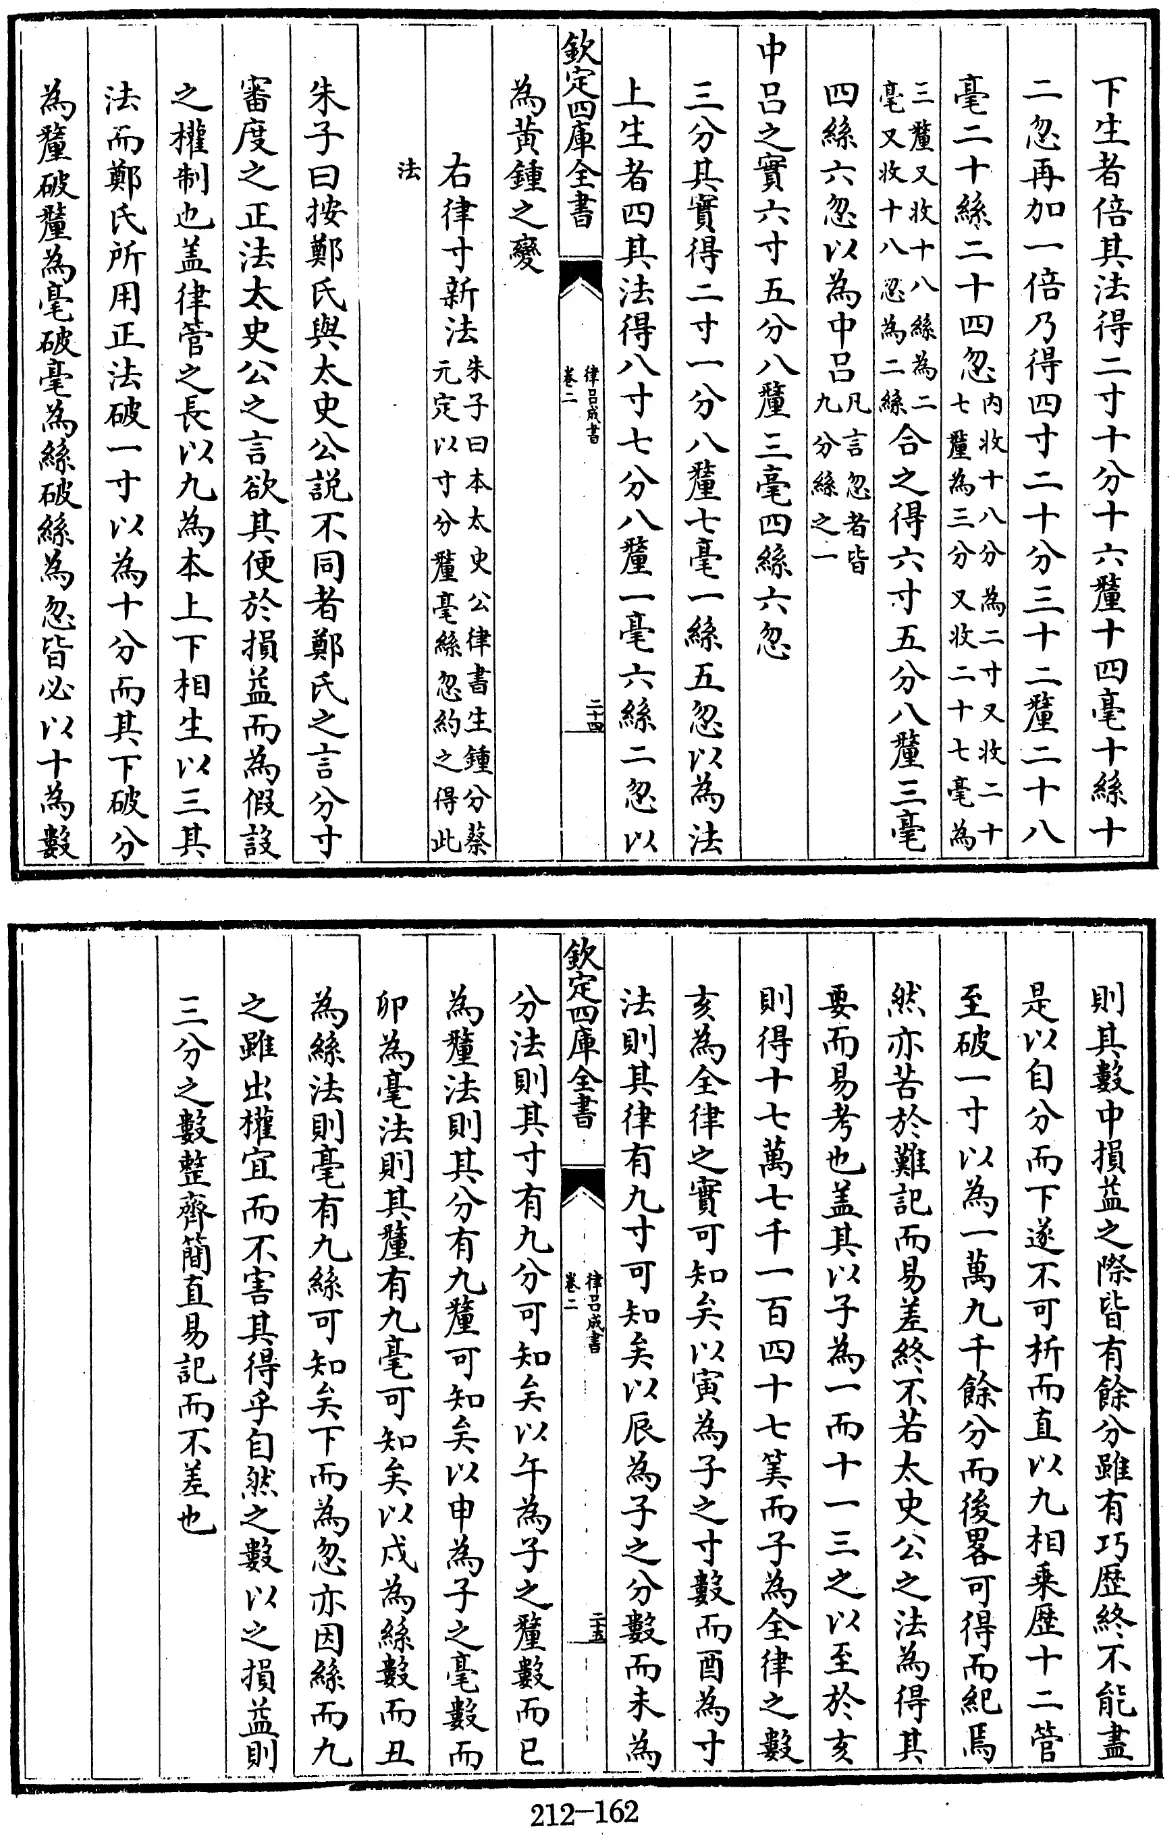 下生者倍其法得二寸十分十六釐十四毫十絲十
二忽再加一倍乃得四寸二十分三十二釐二十八
毫二十絲二十四忽內收十八分為二寸又收二十七釐為三分又收二十七毫為
三釐又收十八絲為二毫又收十八忽為二絲合之得六寸五分八釐三毫
四絲六忽以為中呂凡言忽者皆九分絲之一
中呂之實六寸五分八釐三毫四絲六忽
三分其實得二寸一分八釐七毫一絲五忽以為法
上生者四其法得八寸七分八釐一毫六絲二忽以
欽定四庫全書
律呂成書
卷二
二十四
為黃鍾之變
右律寸新法朱子曰本太史公律書生鍾分蔡元定以寸分釐毫絲忽約之得此
法
朱子曰按鄭氏與太史公說不同者鄭氏之言分寸
審度之正法太史公之言欲其便於損益而為假設
之權制也盖律管之長以九為本上下相生以三其
法而鄭氏所用正法破一寸以為十分而其下破分
為釐破釐為毫破毫為絲破絲為忽皆必以十為數
則其數中損益之際皆有餘分雖有巧歷終不能盡
是以自分而下遂不可析而直以九相乗歷十二管
至破一寸以為一萬九千餘分而後畧可得而紀焉
然亦苦於難記而易差終不若太史公之法為得其
要而易考也盖其以子為一而十一三之以至於亥
則得十七萬七千一百四十七筭而子為全律之數
亥為全律之實可知矣以寅為子之寸數而酉為寸
法則其律有九寸可知矣以辰為子之分數而未為
欽定四庫全書
律呂成書
卷二
二十五
分法則其寸有九分可知矣以午為子之釐數而巳
為釐法則其分有九釐可知矣以申為子之毫數而
卯為毫法則其釐有九毫可知矣以戌為絲數而丑
為絲法則毫有九絲可知矣下而為忽亦因絲而九
之雖出權宜而不害其得乎自然之數以之損益則
三分之數整齊簡直易記而不差也
212-162